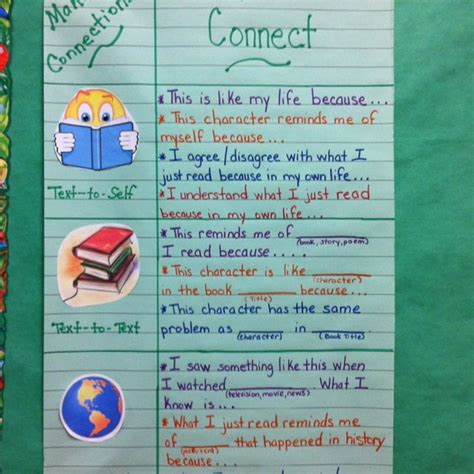 Making
Connections
Connect
* This is like my life because...
* This character reminds me of
myself because...
* I agree/disagree with what I
just read because in my own life...
* I understand what I just read
because in my own life...
Text-to-Self
* This reminds me of ________
(book, story, poem)
I read because....
* This character is like ________
(character)
in the book ________ because...
(Title)
* This character has the same
problem as ________ in ________.
(character) (Book Title)
Text-to-Text
* I saw something like this when
I watched ________. What I
(television, movie, news)
Know is...
* What I just read reminds me
of ________ that happened in history
because...